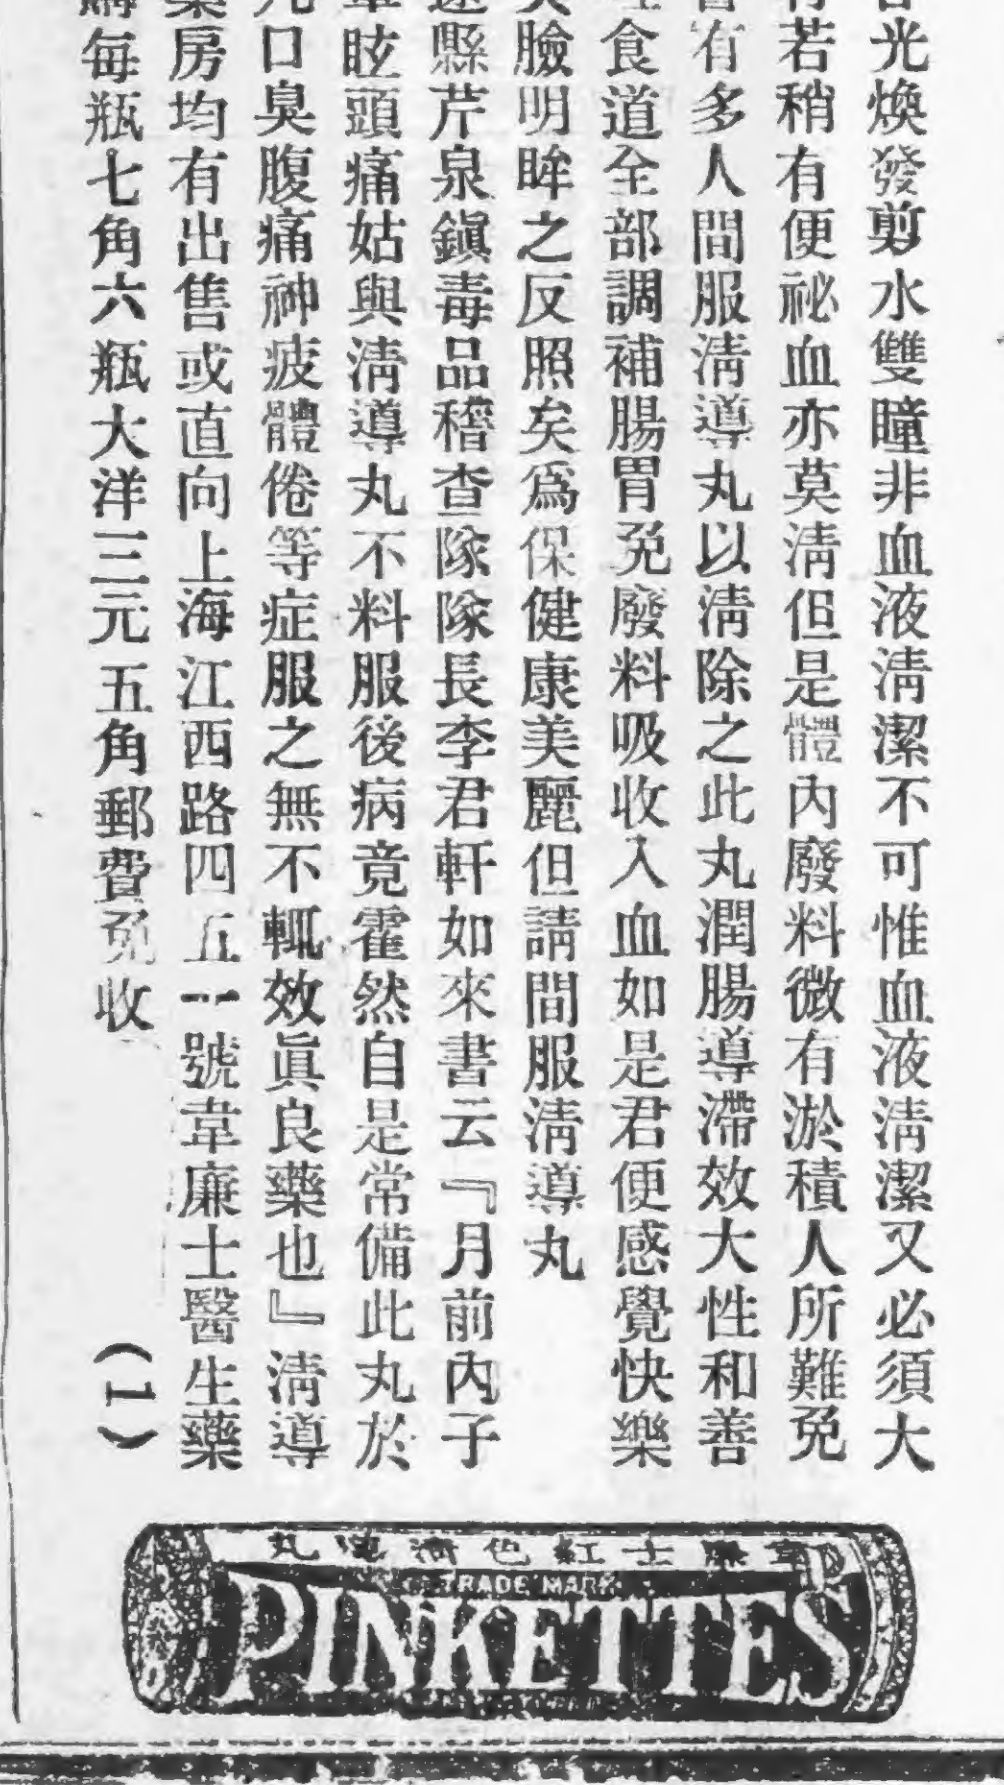 光煥發剪水雙瞳非血液淸潔不可惟血液淸潔又必須大
若稍有便祕血亦莫淸但是體內廢料微有淤積人所難免
有多人間服淸導丸以淸除之此丸潤腸導滯效大性和善
食道全部調補腸胃免廢料吸收入血如是君便感覺快樂
臉明眸之反照矣爲保健康美麗但請間服淸導丸
縣芹泉鎭毒品稽查隊隊長李君軒如來書云『月前內子
眩頭痛姑與淸導丸不料服後病竟霍然自是常備此丸於
口臭腹痛神疲體倦等症服之無不輒效眞良藥也』淸導
房均有出售或直向上海江西路四五一號韋廉士醫生藥
每瓶七角六瓶大洋三元五角郵費免收 (1)
韋廉士紅色淸導丸
TRADE MARK
PINKETTES